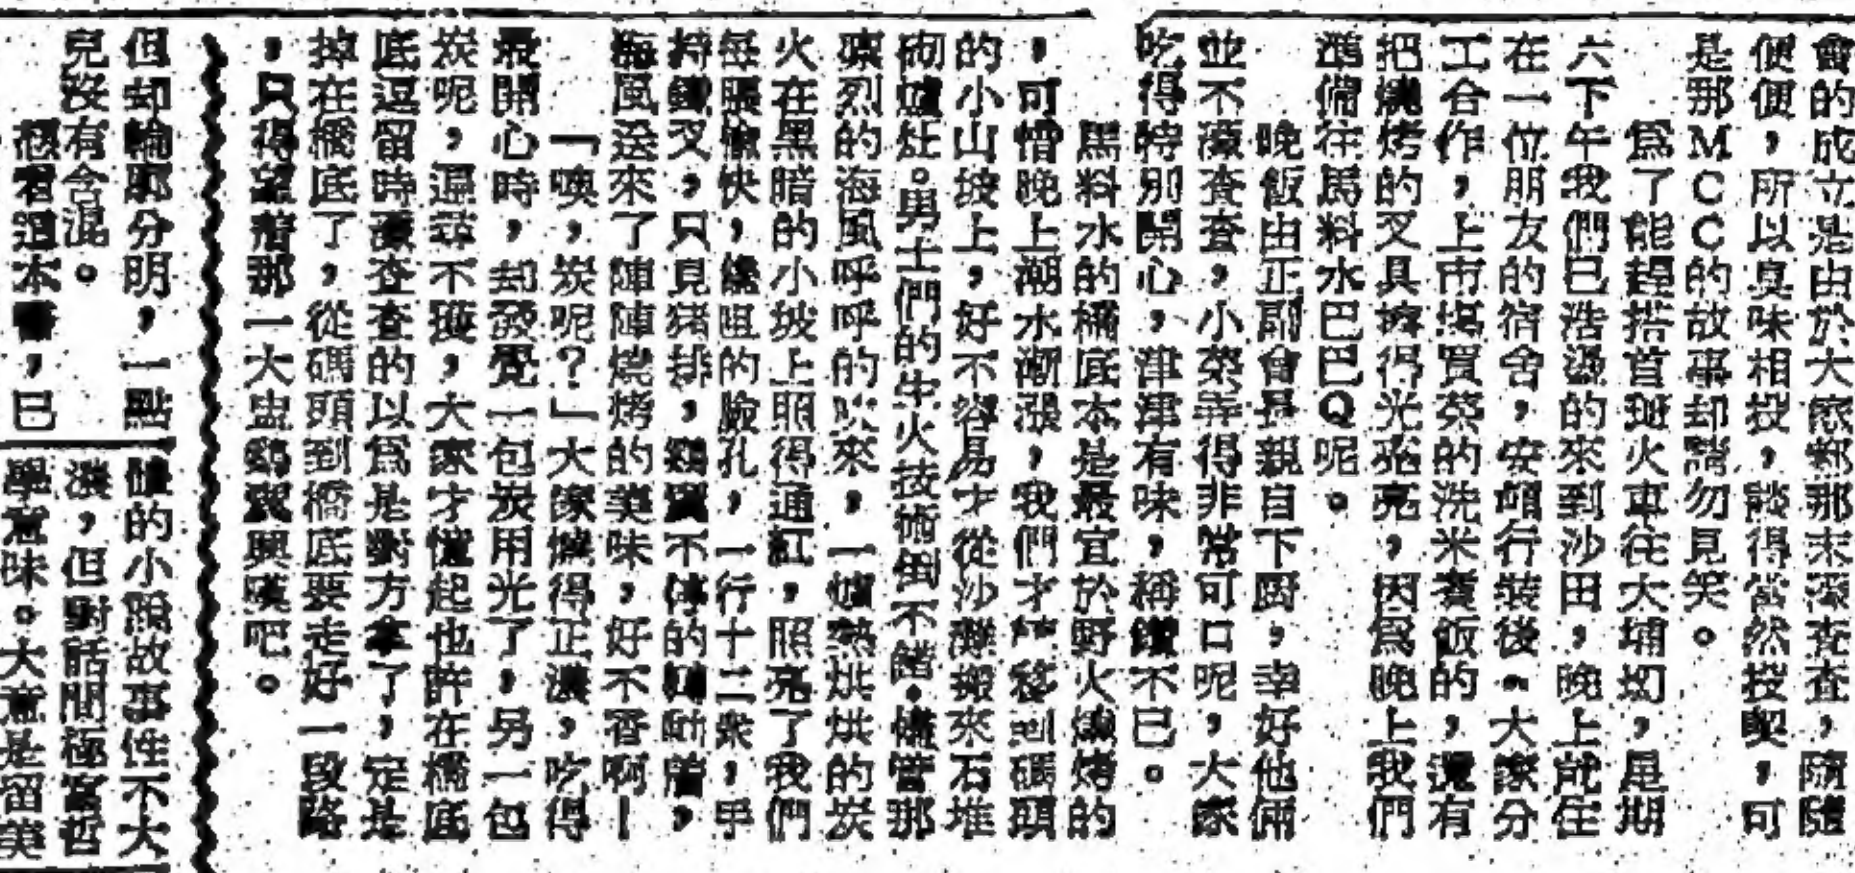 會的成立是由於大家都那末濕查查，隨隨
便便，所以臭味相投，談得當然投契，可
是那ＭＣＣ的故事却請勿見笑。
爲了能趕搭首班火車往大埔墟，星期
六下午我們已浩盪的來到沙田，晚上就住
在一位朋友的宿舍，安頓行裝後，大家分
工合作，上市塲買菜的洗米煑飯的，還有
把燒烤的叉具擦得光亮亮，因爲晚上我們
準備往馬料水巴巴Ｑ呢。
晚飯由正副會長親自下厨，幸好他倆
並不濕查查，小菜弄得非常可口呢，大家
吃得特別開心，津津有味，稱讚不已。
馬料水的橋底本是最宜於野火燒烤的
，可惜晚上潮水漸漲，我們才移到碼頭
的小山坡上，好不容易才從沙灘搬來石堆
砌爐灶。男士們的生火技術倒不錯，儘管那
凛烈的海風呼呼的吹來，一爐熱烘烘的炭
火在黑暗的小坡上照得通紅，照亮了我們
每張愉快，的臉孔，一行十二衆，手
持鐵叉，只見猪排，鷄翼不停的轉動着，
海風送來了陣陣燒烤的美味，好不香啊！
「噢，炭呢？」大家燒得正濃，吃得
最開心時，却發覺一包炭用光了，另一包
炭呢，遍尋不獲，大家才憶起也許在橋底
底逗留時濕查查的以爲是對方拿了，定是
掉在橋底了，從碼頭到橋底要走好一段路
，只得望着那一大盅鷄翼興嘆吧。
但却輪郭分明，一點
兒沒有含混。
想看這本書，已
的小說故事性不大
濃，但對話間極富哲
學意味。大意是留美